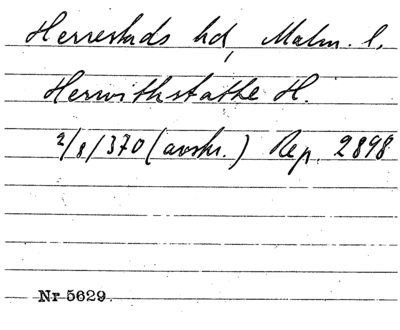 Herrestads hd, Malm. l.
Herwithstathe H.
2/8/370 (avskr.) Rep. 2898
Nr 5629.